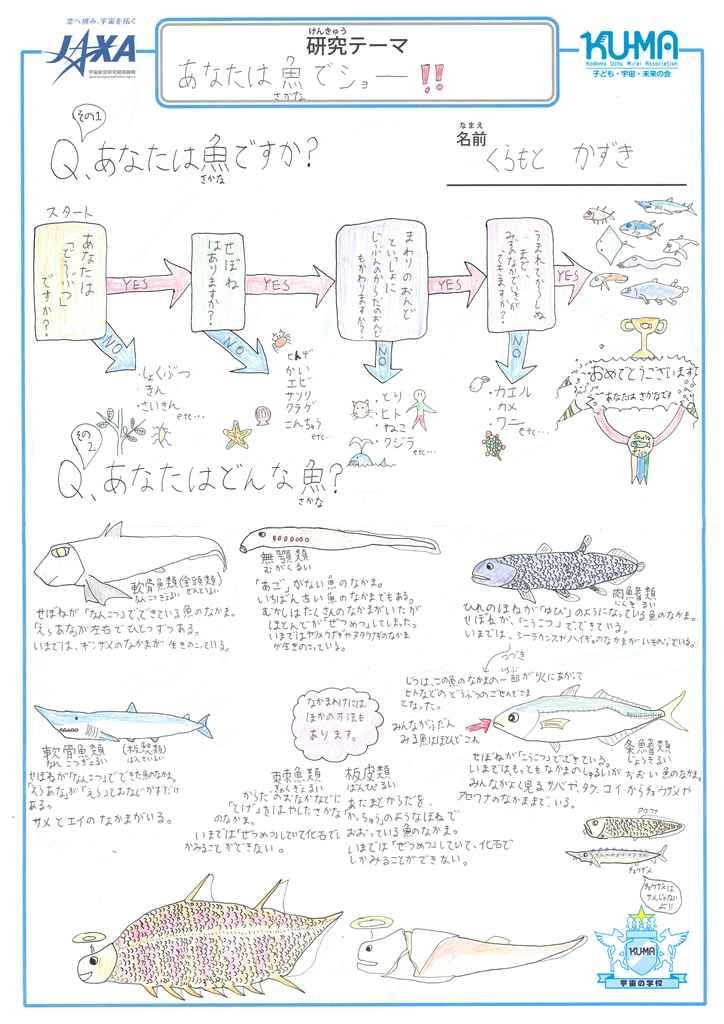 空へ挑み、宇宙を拓く
JAXA
宇宙航空研究開発機構
けんきゅう
研究テーマ
あなたは魚でショー!!
さかな
KU-MA
Kodomo Uchu Mirai Association
子ども・宇宙・未来の会
その1
Q、あなたは魚ですか?
さかな
なまえ
名前
くらもと かずき
スタート
あなたは
「どうぶつ」
ですか?
YES
NO
・しょくぶつ
・きん
・さいきん
etc…
せぼね
はありますか?
YES
NO
ヒトデ
かい
エビ
サソリ
クラゲ
こんちゅう
etc…
まわりのおんど
といっしょに
じぶんのからだのおんど
もかわりますか?
YES
NO
・とり
・ヒト
・ねこ
・クジラ
etc…
うまれてから〜しぬ
まで、
みずのなかでいきが
できますか?
YES
NO
・カエル
・カメ
・ワニ
etc…
おめでとうございます
あなたはさかなです
その2
Q、あなたはどんな魚?
さかな
軟骨魚類(全頭類)
なんこつぎょるい ぜんとうるい
せぼねが「なんこつ」でできている魚のなかま。
「えらあな」が左右でひとつずつある。
いまでは、ギンザメのなかまが生きのこっている。
無顎類
むがくるい
「あご」がない魚のなかま。
いちばん古い魚のなかまでもある。
むかしはたくさんのなかまがいたが
ほとんどが「ぜつめつ」してしまった。
いまではヤツメウナギやヌタウナギのなかま
が生きのこっている。
肉鰭類
にくきるい
ひれのほねが「ゆび」のようになっている魚のなかま。
せぼねが、「こうこつ」でできている。
いまでは、シーラカンスやハイギョのなかまがいきのこっている。
つづき
いちぶ
じつは、この魚のなかまの一部が火にあがって
ヒトなどのどうぶつのごせんぞさま
となった。
軟骨魚類 (板鰓類)
なんこつぎょるい ばんさいるい
せぼねが「なんこつ」でできた魚のなかま。
「えらあな」が「えら」とおなじかずだけ
ある。
サメとエイのなかまがいる。
なかまわけには
ほかの方法も
あります。
みんながふだん
みる魚はほとんどこれ
条鰭類
じょうきるい
せぼねが「こうこつ」でできている。
いまではもっともなかまのしゅるいがおおい魚のなかま。
みんながよく見るサバや、タイ、コイからチョウザメや
アロワナのなかままでいる。
棘魚類
きょくぎょるい
からだのおなかなどに
「とげ」をはやしたさかな
のなかま。
いまでは「ぜつめつ」していて化石でし
かみることができない。
板皮類
ばんぴるい
あたまとからだを、
「かっちゅう」のようなほねで
おおっている魚のなかま。
いまでは「ぜつめつ」していて、化石で
しかみることができない。
アロワナ
チョウザメ
チョウザメは
サメじゃない
よ!!
KU-MA
宇宙の学校